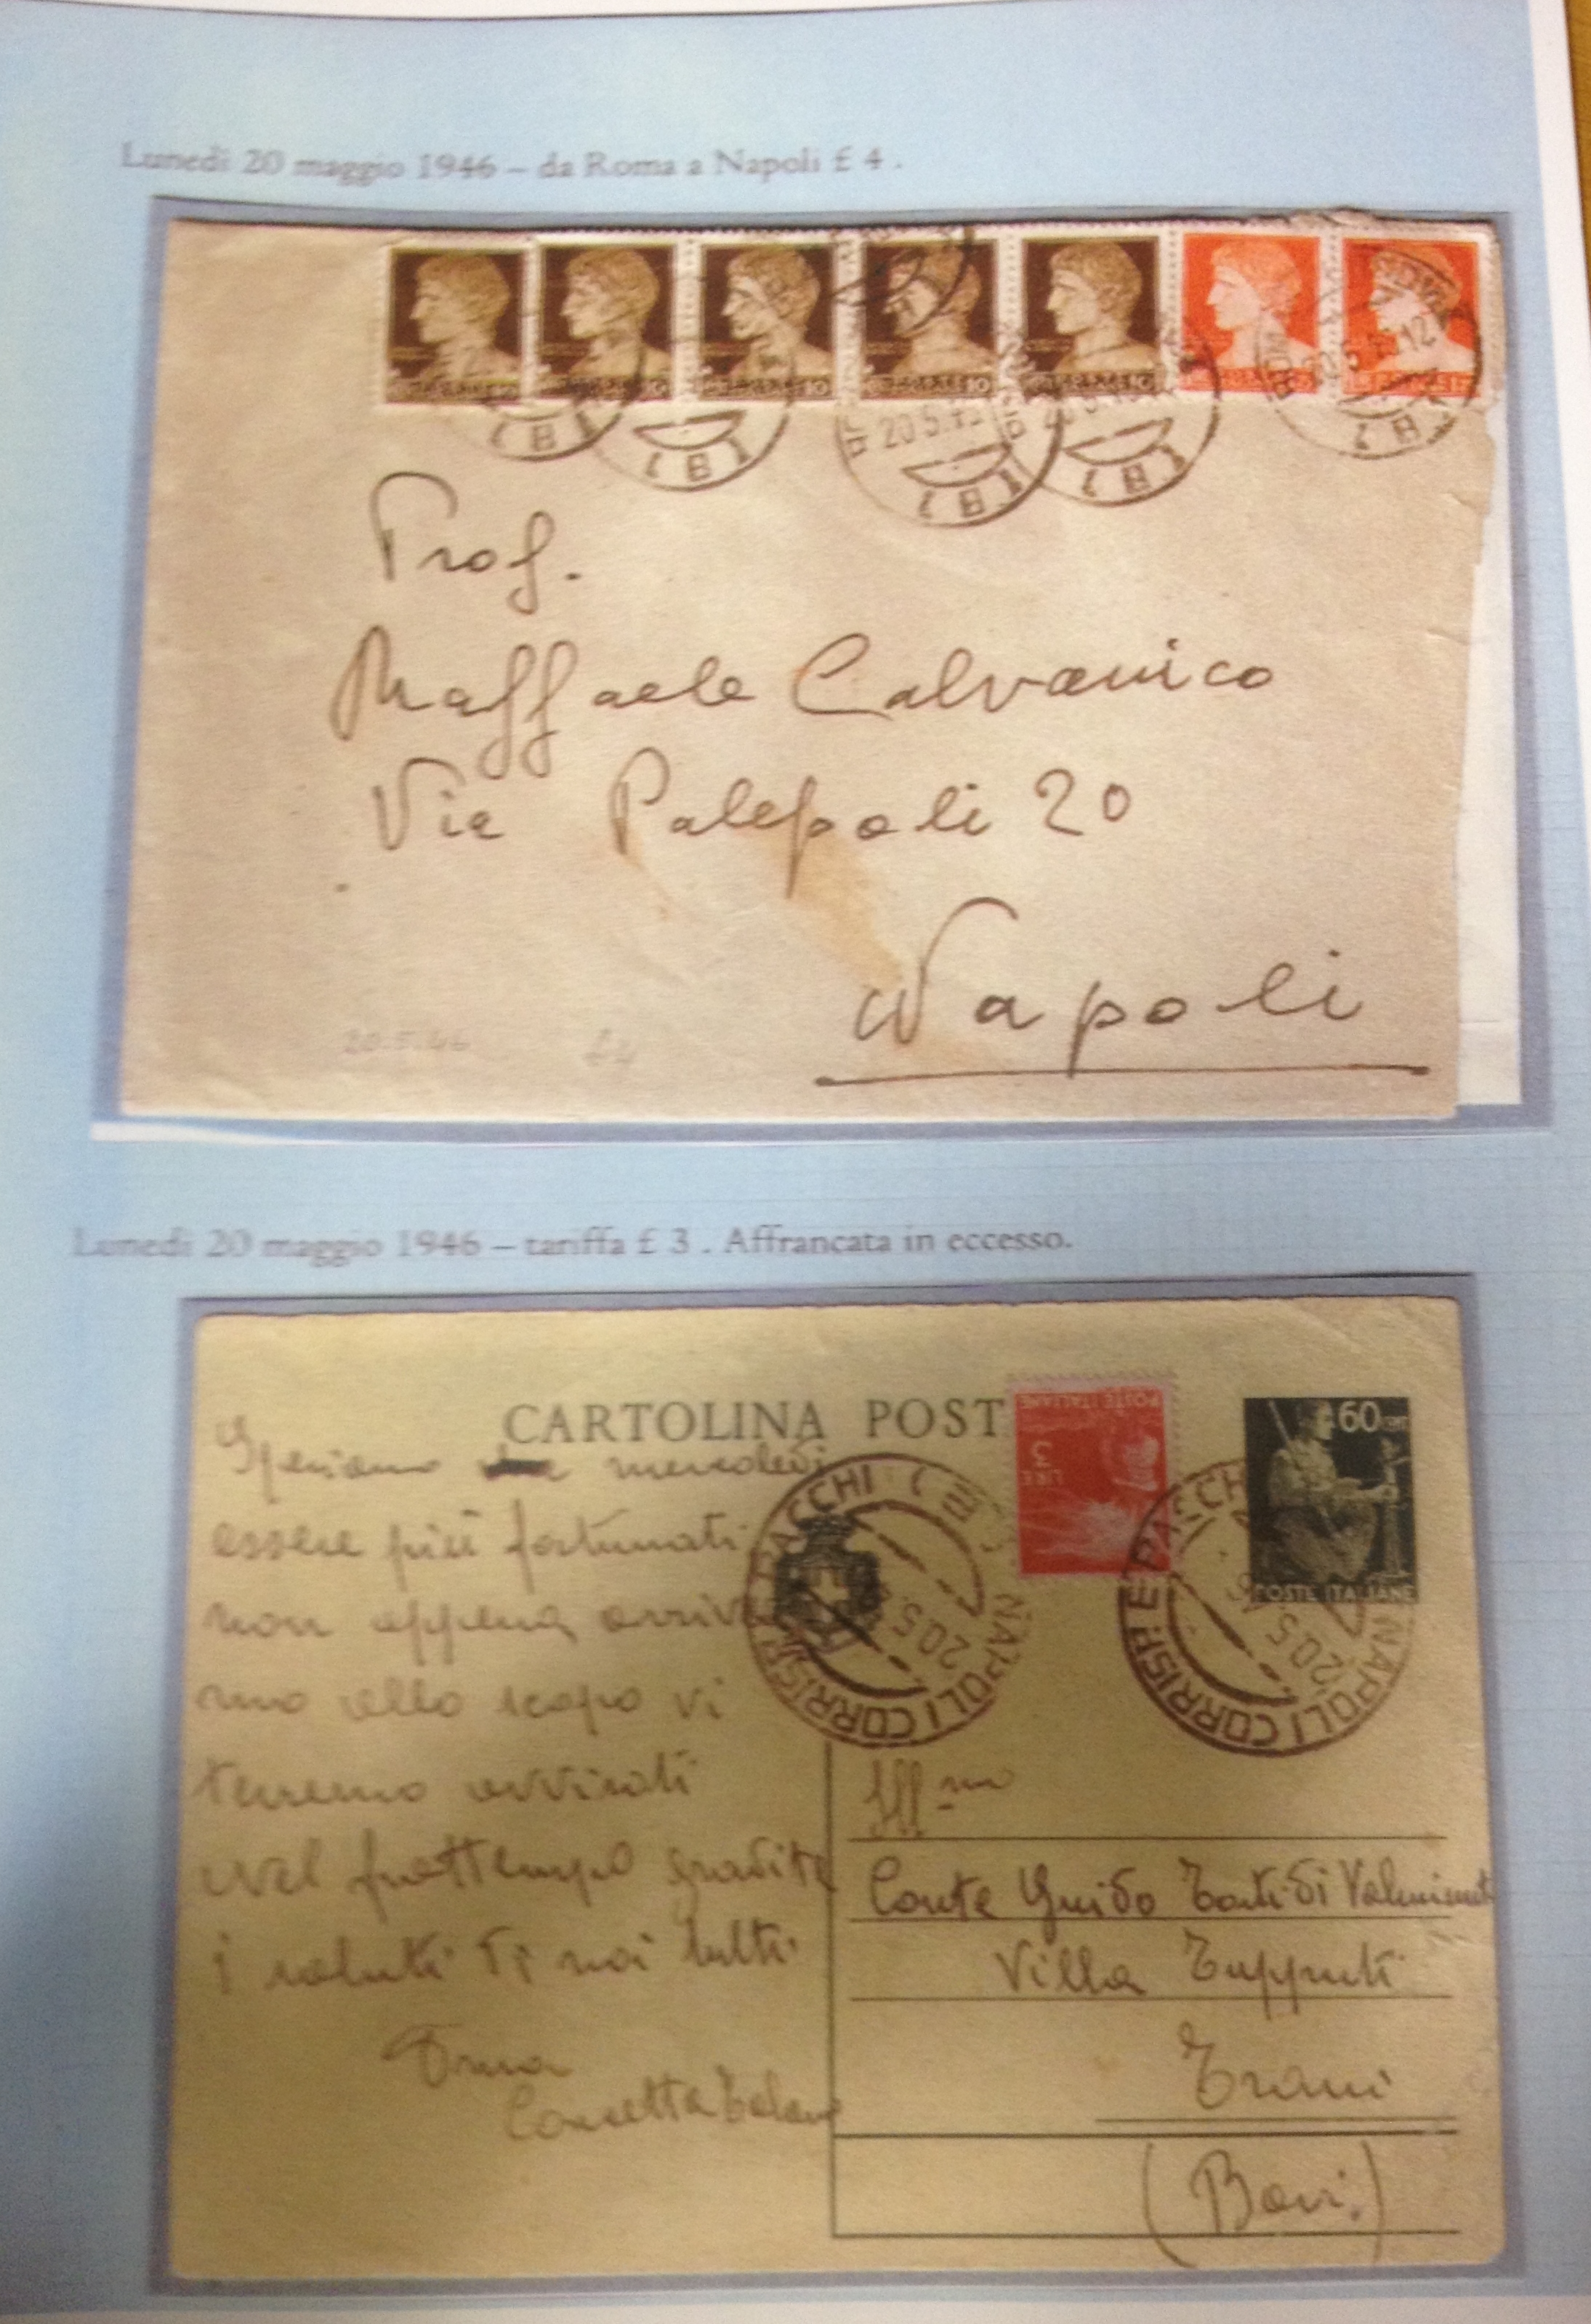 Lunedì 20 maggio 1946 – da Roma a Napoli £ 4 .
20.5.
(B)
(B)
20.5.
(B)
(B)
20.5. 12
(B)
Prof.
Raffaele Calvanico
Via Palepoli 20
Napoli
20.5.46 £4
Lunedì 20 maggio 1946 – tariffa £ 3 . Affrancata in eccesso.
CARTOLINA POST
POSTE ITALIANE
LIRE 3
60 CENT
POSTE ITALIANE
NAPOLI CORRISP. E PACCHI
20.5.
NAPOLI CORRISP. E PACCHI
20.5.
Speriamo mercoledì
essere più fortunati
non appena arrive
mo allo scopo vi
terremo avvisati
Nel frattempo gradite
i saluti di noi tutti
Concetta
Ill.mo
Conte Guido di
Villa Tupputi
Trani
(Bari.)